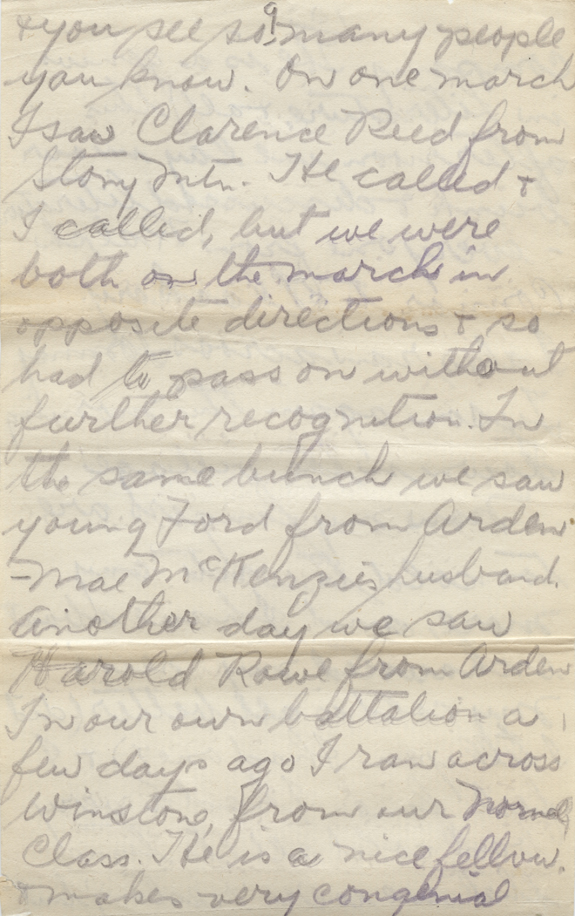 9
& you see so many people
you know. On one march
I saw Clarence Reed from
Stony Mtn. He called &
I called, but we were
both on the march in
opposite directions & so
had to pass on without
further recognition. In
the same bunch we saw
young Ford from Arden
- Mae McKenzies husband.
Another day we saw
Harold Rowe from Arden
In our own battalion a
few days ago I ran across
Winstone, from our Normal
Class. He is a nice fellow.
& makes very congenial